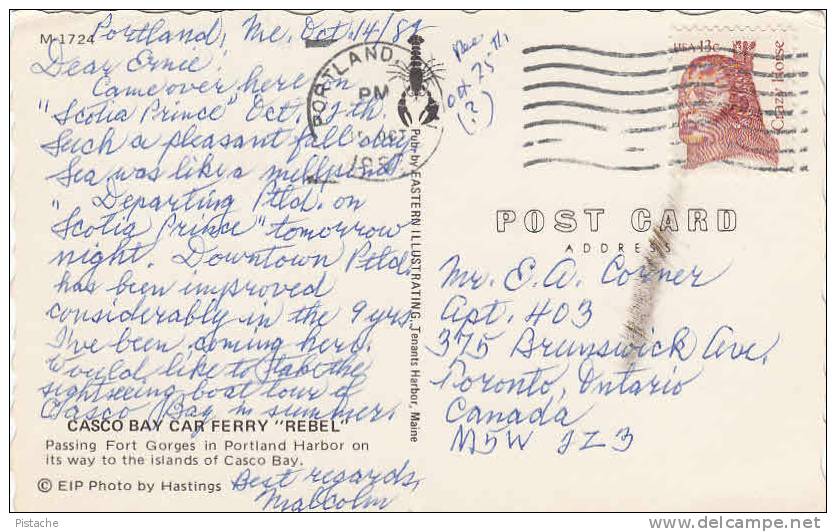 Portland, Me. Oct. 14/82
M-1724
Dear Ernie:
Came over here on
"Scotia Prince" Oct. 12th.
Such a pleasant fall day.
Sea was like a millpond.
Departing Ptld. on
"Scotia Prince" tomorrow
night. Downtown Ptld.
has been improved
considerably in the 9 yrs.
I've been coming here.
Would like to take the
sightseeing boat tour of
Casco Bay in summer.
CASCO BAY CAR FERRY "REBEL"
Passing Fort Gorges in Portland Harbor on
its way to the islands of Casco Bay.
© EIP Photo by Hastings
Best regards,
Malcolm
Pub. by EASTERN ILLUSTRATING, Tenants Harbor, Maine
PORTLAND,
PM
OCT
Rec
Oct. 25th
(?)
USA 13c
Crazy Horse
POST CARD
ADDRESS
Mr. E. A. Corner
Apt. 403
375 Brunswick Ave.
Toronto, Ontario
Canada
M5W
Pistache
www.delcampe.net